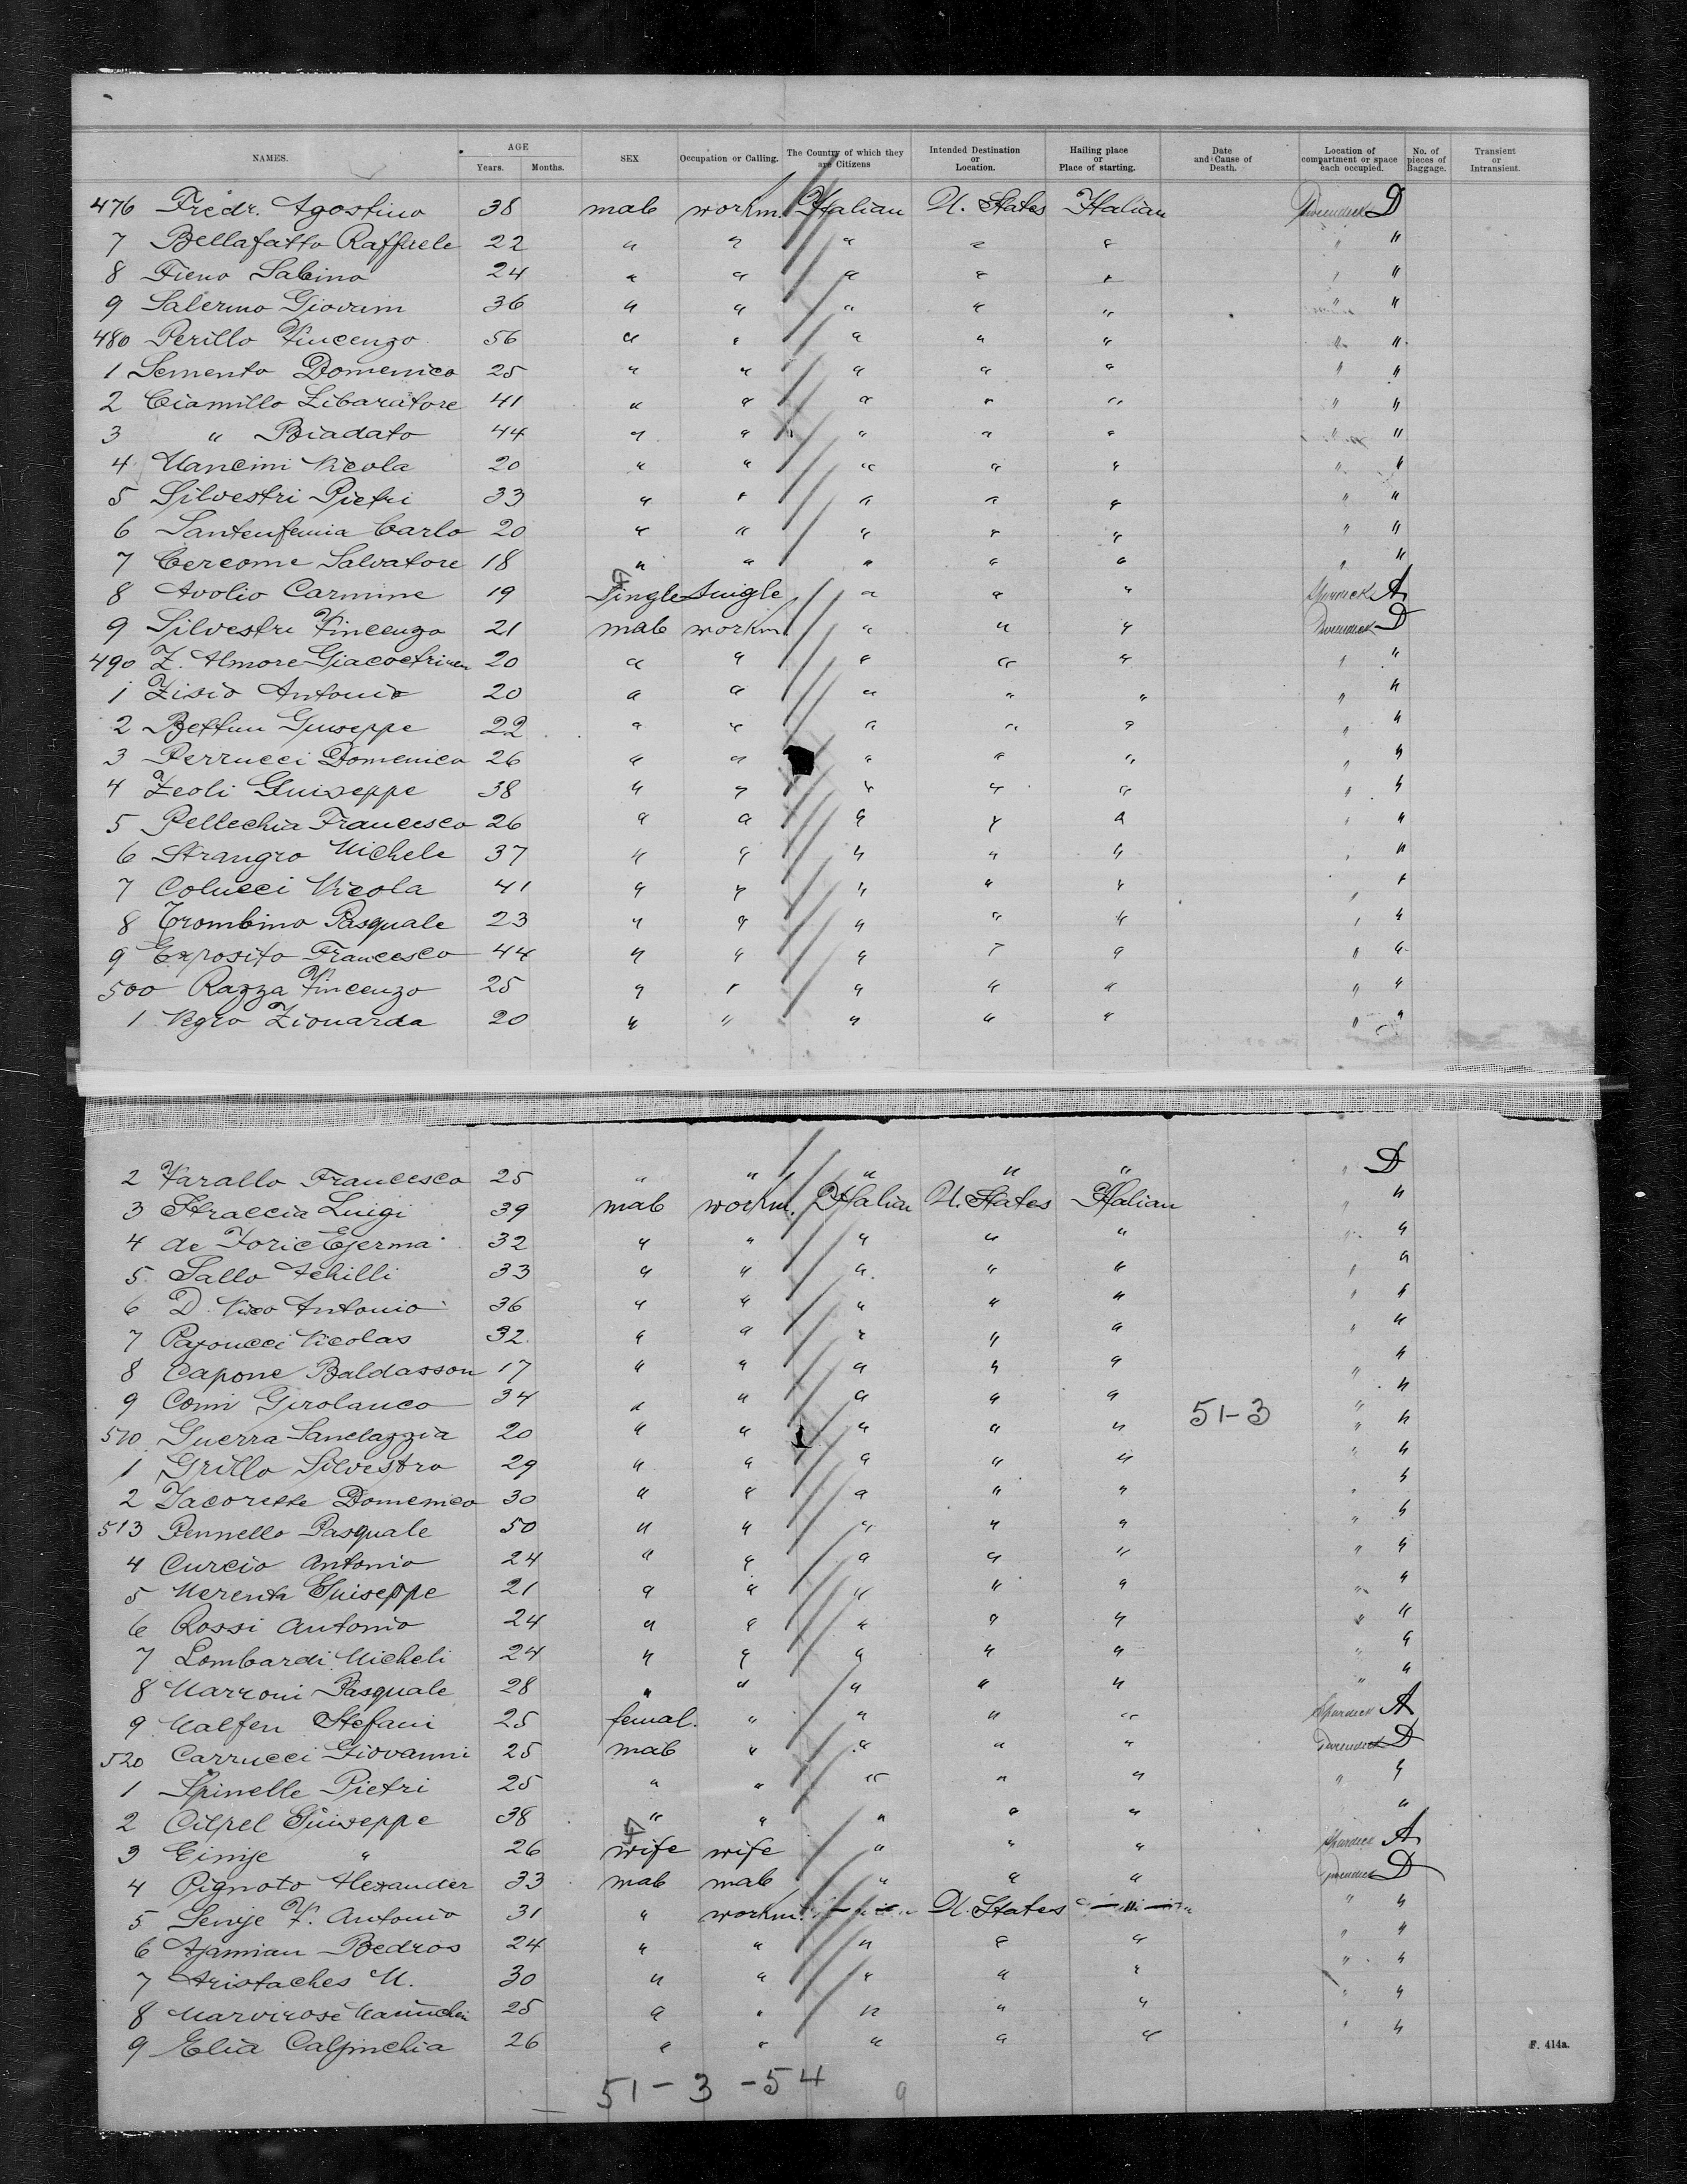 NAMES. AGE Years. Months. SEX Occupation or Calling. The Country of which they are Citizens Intended Destination or Location. Hailing place or Place of starting. Date and Cause of Death. Location of compartment or space each occupied. No. of pieces of Baggage. Transient or Intransient.
476 Fredr. Agostino 38 male workm. Italian U. States Italian D
7 Bellafatto Raffaele 22 " " " " " " "
8 Fieno Sabino 24 " " " " " " "
9 Salerno Giovani 36 " " " " " " "
480 Perillo Vincenzo 56 " " " " " " "
1 Semento Domenico 25 " " " " " " "
2 Ciamillo Libaratore 41 " " " " " " "
3 " Biadato 44 " " " " " " "
4 Mancini Nicola 20 " " " " " " "
5 Silvestri Pietri 33 " " " " " " "
6 Santenfemia Carlo 20 " " " " " " "
7 Cercome Salvatore 18 " " " " " " "
8 Avolio Carmine 19 Single Single " " " A
9 Silvestri Vincenzo 21 male workm " " " D
490 Z. Almore 20 " " " " " " "
1 Zisio Antonio 20 " " " " " " "
2 Giuseppe 22 " " " " " " "
3 Perrucci Domenico 26 " " " " " " "
4 Zeoli Guiseppe 38 " " " " " " "
5 Pellechia Francesco 26 " " " " " " "
6 Strangro Michele 37 " " " " " " "
7 Colucci Nicola 41 " " " " " " "
8 Trombino Pasquale 23 " " " " " " "
9 Exposito Francesco 44 " " " " " " "
500 Razza Vincenzo 25 " " " " " " "
1 Negro Zionarda 20 " " " " " " "
2 Varallo Francesco 25 " " " " " " D
3 Straccia Luigi 39 male workm. Italian U. States Italian " "
4 de 32 " " " " " " "
5 Sallo Achilli 33 " " " " " " "
6 D. Nico Antonio 36 " " " " " " "
7 Nicolas 32 " " " " " " "
8 Capone Baldasson 17 " " " " " " "
9 Comi Girolanco 34 " " " " " 51-3 " "
510 Guerra 20 " " " " " " "
1 Grillo Silvestro 29 " " " " " " "
2 Domenico 30 " " " " " " "
513 Pennello Pasquale 50 " " " " " " "
4 Curcio Antonio 24 " " " " " " "
5 Merenta Guiseppe 21 " " " " " " "
6 Rossi Antonio 24 " " " " " " "
7 Lombardi Micheli 24 " " " " " " "
8 Marroni Pasquale 28 " " " " " " "
9 Malfen Stefani 25 femal. " " " " A
520 Carrucci Giovanni 25 male " " " " D
1 Spinelle Pietri 25 " " " " " " "
2 Cilpel Guiseppe 38 " " " " " "
3 " 26 wife wife " " " A
4 Pignoto Alexander 33 male male " " " D
5 Antonio 31 " workm. U. States " "
6 Ajamian Bedros 24 " " " " " " "
7 Aristaches M. 30 " " " " " " "
8 25 " " " " " " "
9 Elia Calpinchia 26 " " " " " " "
F. 414a.
51-3-54 9